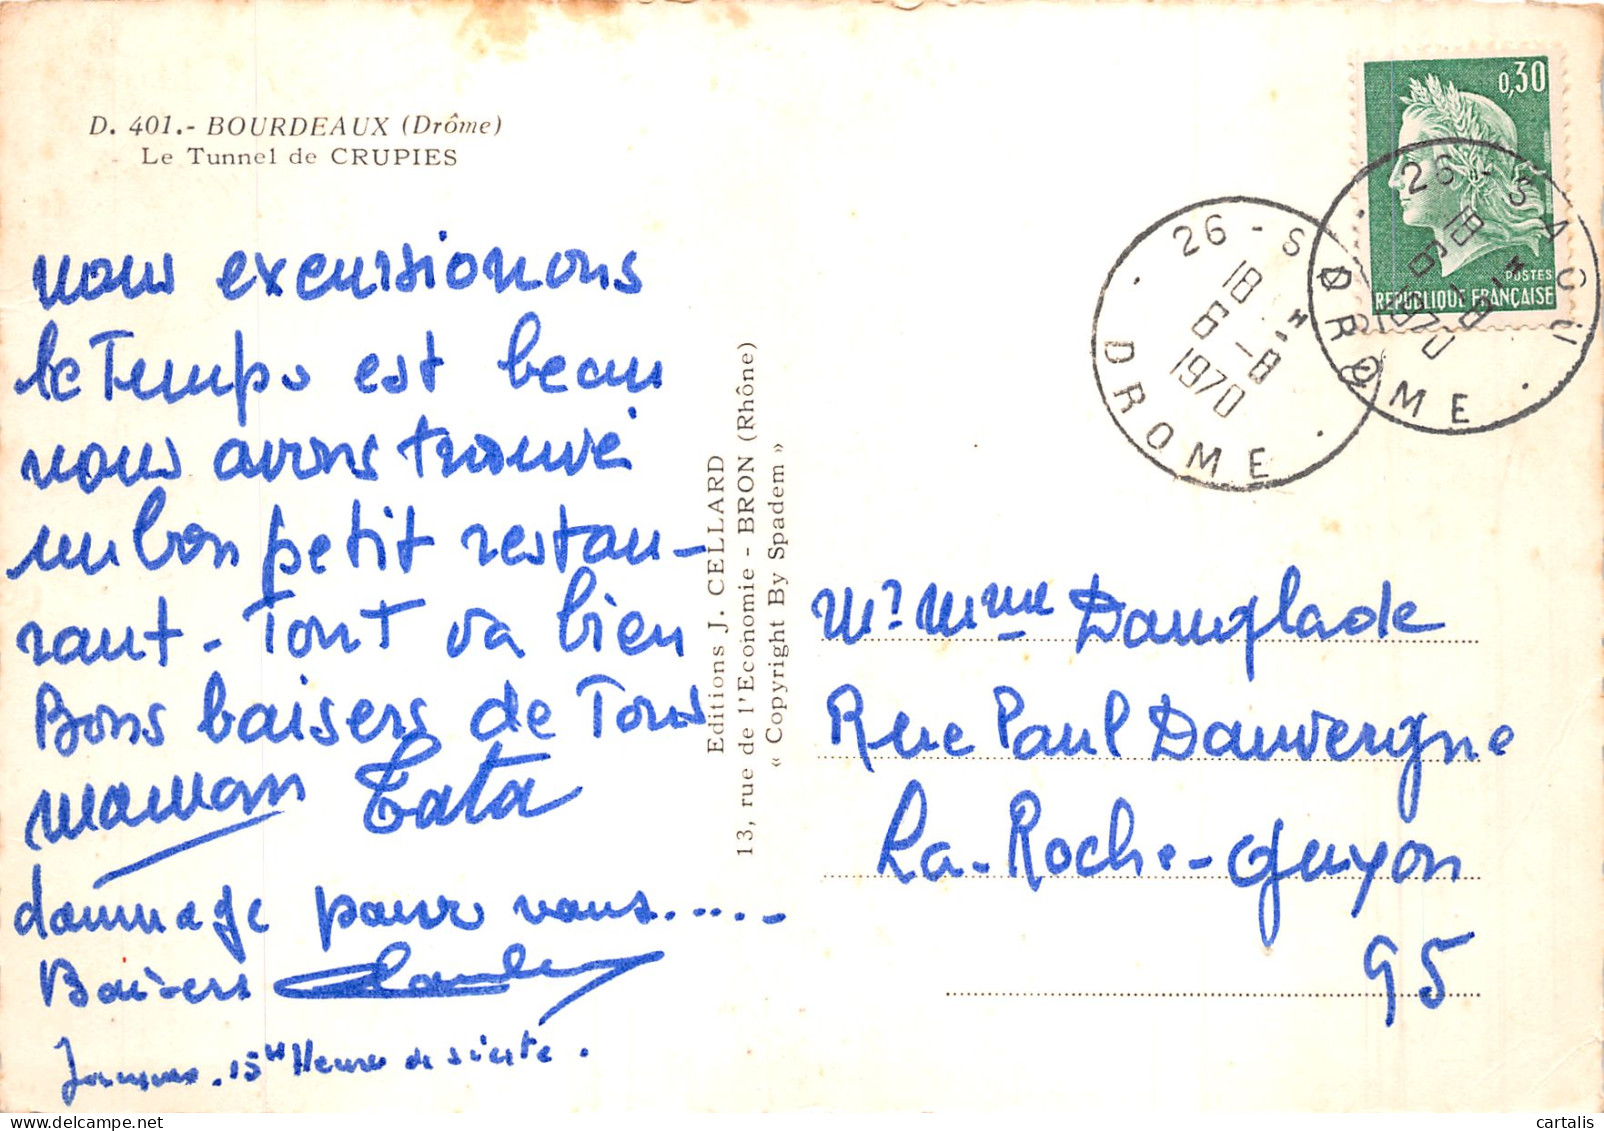 D. 401.- BOURDEAUX (Drôme)
Le Tunnel de CRUPIES
nous excursionons
le Temps est beau
nous avons trouvé
un bon petit restau-
rant - Tout va bien
Bons baisers de Tous
maman Tata
dommage pour vous......-
Baisers
Jacques. 15H Heure de sieste.
Editions J. CELLARD
13, rue de l'Economie - BRON (Rhône)
« Copyright By Spadem »
0,30
POSTES
REPUBLIQUE FRANÇAISE
26 - S
18 H
6 - 8
1970
DROME
26 - SAOU
18 H
6 - 8
1970
DROME
Mr Mme Danglade
Rue Paul Dauvergne
La-Roche-Guyon
95
cartalis